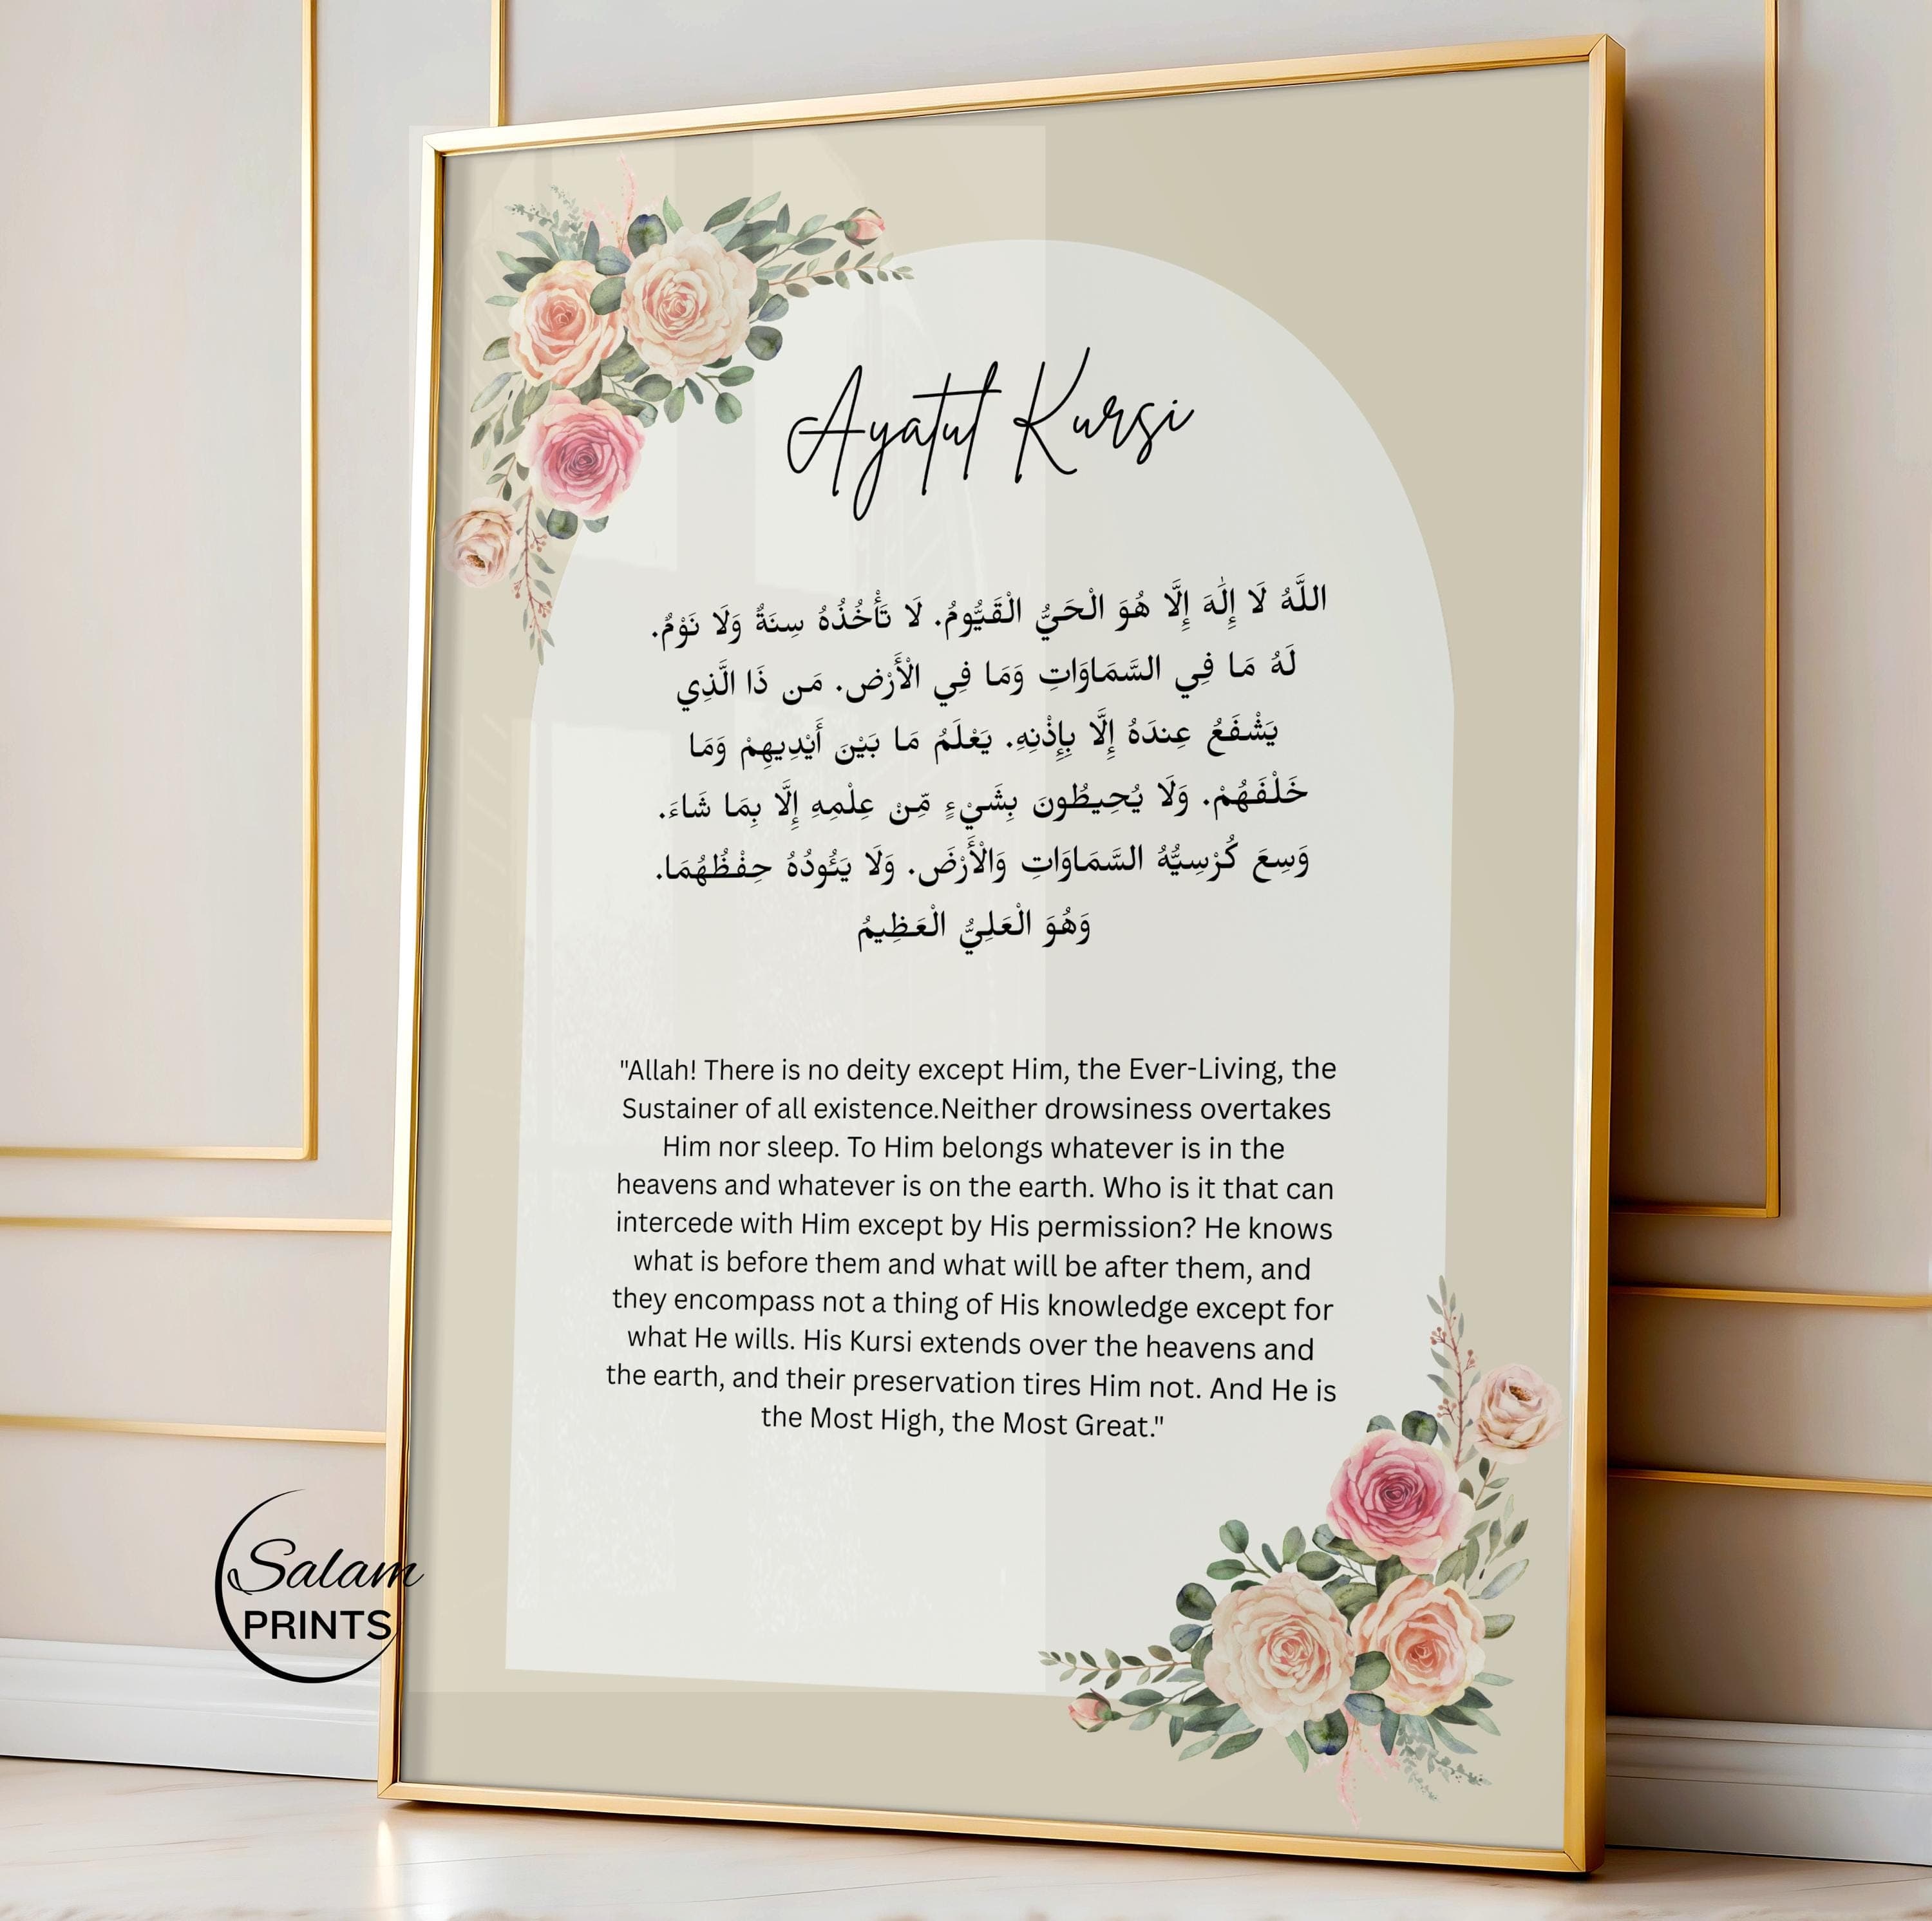 Ayatul Kursi
اللَّهُ لَا إِلَٰهَ إِلَّا هُوَ الْحَيُّ الْقَيُّومُ. لَا تَأْخُذُهُ سِنَةٌ وَلَا نَوْمٌ.
لَهُ مَا فِي السَّمَاوَاتِ وَمَا فِي الْأَرْضِ. مَن ذَا الَّذِي
يَشْفَعُ عِندَهُ إِلَّا بِإِذْنِهِ. يَعْلَمُ مَا بَيْنَ أَيْدِيهِمْ وَمَا
خَلْفَهُمْ. وَلَا يُحِيطُونَ بِشَيْءٍ مِّنْ عِلْمِهِ إِلَّا بِمَا شَاءَ.
وَسِعَ كُرْسِيُّهُ السَّمَاوَاتِ وَالْأَرْضَ. وَلَا يَئُودُهُ حِفْظُهُمَا.
وَهُوَ الْعَلِيُّ الْعَظِيمُ
"Allah! There is no deity except Him, the Ever-Living, the
Sustainer of all existence.Neither drowsiness overtakes
Him nor sleep. To Him belongs whatever is in the
heavens and whatever is on the earth. Who is it that can
intercede with Him except by His permission? He knows
what is before them and what will be after them, and
they encompass not a thing of His knowledge except for
what He wills. His Kursi extends over the heavens and
the earth, and their preservation tires Him not. And He is
the Most High, the Most Great."
Salam
PRINTS